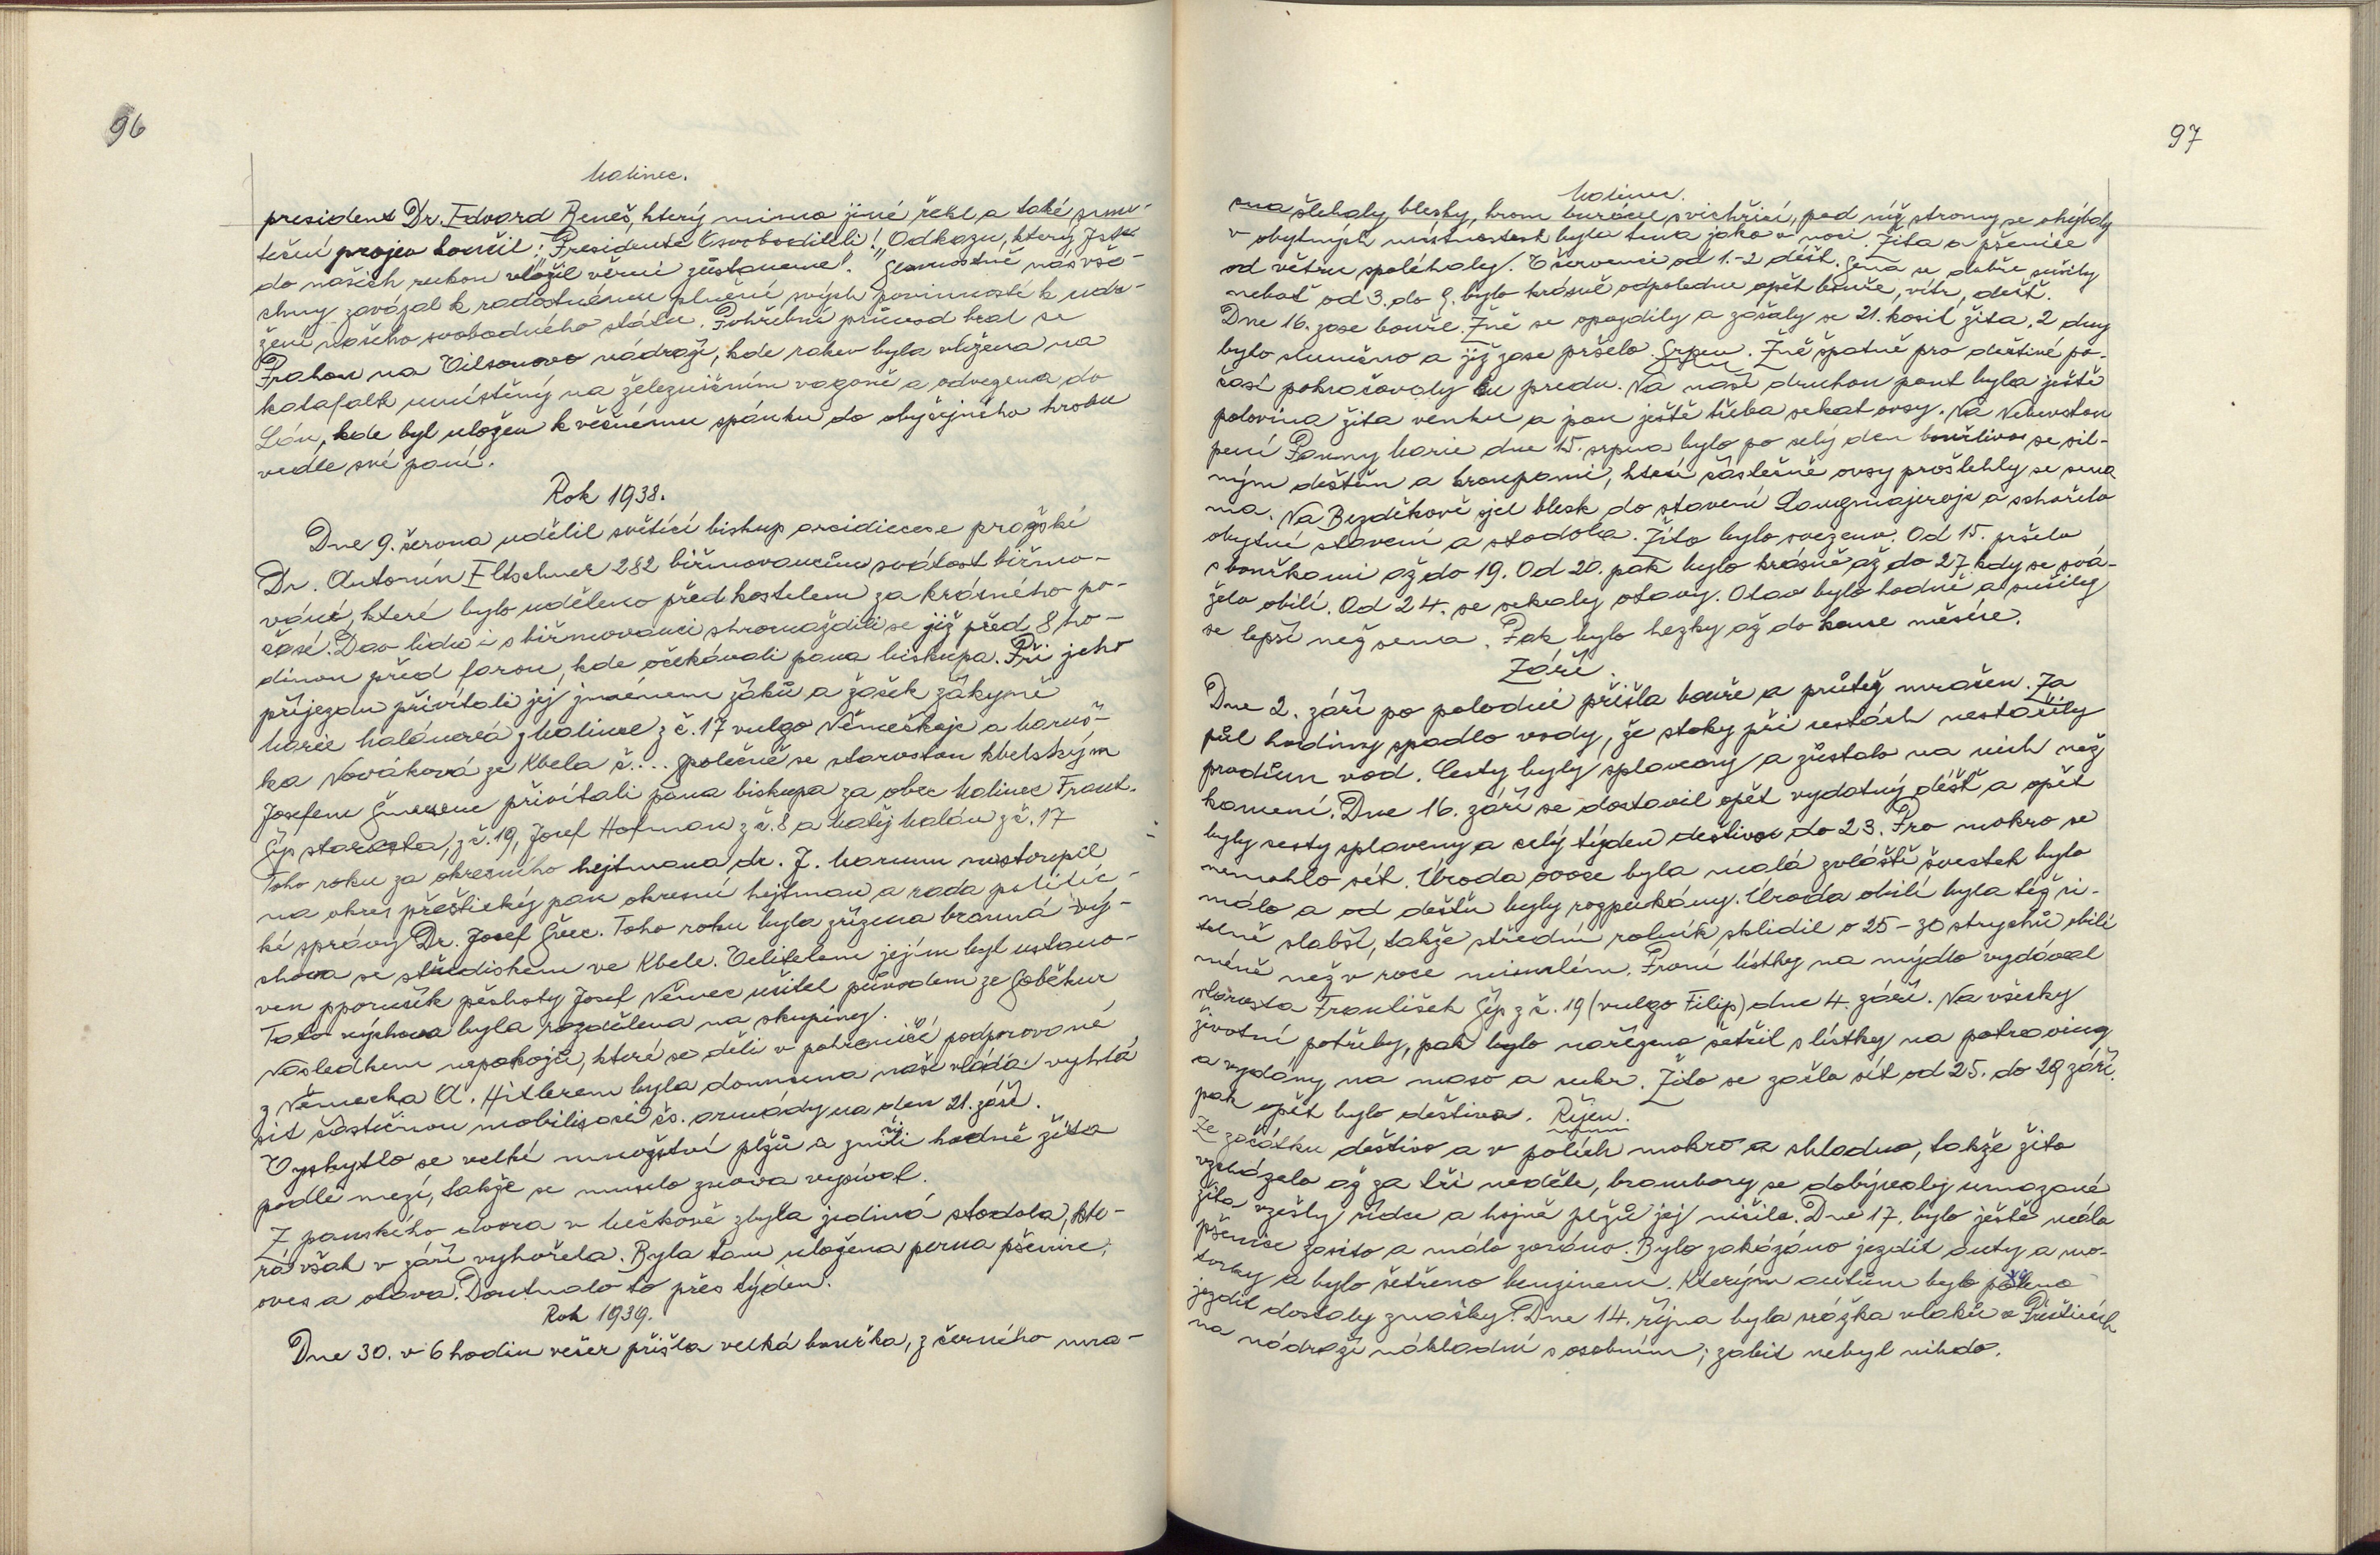 96
Malinec.
president Dr. Edvard Beneš, který mimo jiné řekl a také smu-
teční projev končil: "Presidente Osvoboditeli! "Odkazu, který jste
do našich rukou vložil věrni zůstaneme". Slavnostně nás vše-
chny zavázal k radostnému plnění svých povinností k udr-
žení našeho svobodného státu. Pohřební průvod bral se
Prahou na Vilsonovo nádraží, kde rakev byla vložena na
katafalk umístěný na železničním vagoně a odvezena do
Lán, kde byl uložen k věčnému spánku do obyčejného hrobu
vedle své paní.
Rok 1938.
Dne 9. června udělil světící biskup arcidiecese pražské
Dr. Antonín Eltschner 282 biřmovancům svátost biřmo-
vání, které bylo uděleno před kostelem za krásného po-
časí. Dav lidu i s biřmovanci shromáždili se již před 8 ho-
dinou před farou, kde očekávali pana biskupa. Při jeho
příjezdu přivítali jej jménem žáků a žaček žákyně
Marie Malánová z Malince z č. 17 vulgo Němečkojc a Maruš-
ka Nováková ze Kbela č.... společně se starostou kbelským
Josefem přivítali pana biskupa za obec Malinec Frant.
Šíp starosta, z č. 19, Josef Hofman z č. 8 a Matěj Malán z č. 17
Toho roku za okresního hejtmana dr. J. nastoupil
na okres přeštický pan okresní hejtman a rada politic-
ké správy Dr. Josef Švec. Toho roku byla zřízena branná vý-
chova se střediskem ve Kbele. Velitelem jejím byl ustano-
ven pporučík pěchoty Josef Němec učitel původem ze Soběkur
Tato výchova byla rozdělena na skupiny.
Následkem nepokojů, které se děli v pohraničí podporované
z Německa A. Hitlerem byla donucena naše vláda vyhlá
sit částičnou mobilisaci čs. armády na den 21. září.
Vyskytlo se velké množství plžů a zničili hodně žita
podle mezí, takže se muselo znova vysívat.
Z panského dvora v Mečkově zbyla jediná stodola, kte-
rá však v září vyhořela. Byla tam uložena perna pšenice,
oves a otava. Doutnalo to přes týden.
Rok 1939.
Dne 30. v 6 hodin večer přišla velká bouřka, z černého mra-
97
Malinec.
čna šlehaly blesky, hrom burácel s vichřicí, pod níž stromy se ohýbaly
v obytných místnostech byla tma jako v noci. Žita a pšenice
od větru spoléhaly. V červenci od 1.-2 déšť. Sena se dobře sušily
neboť od 3. do 9. bylo krásně odpoledne opět bouře, vítr, déšť.
Dne 16. zase bouře. Žně se opozdily a začaly se 21. kosit žita, 2 dny
bylo slunečno a již zase pršelo. Srpen. Žně špatně pro deštivé po-
časí pokračovaly ku předu. Na naší druhou pouť byla ještě
polovina žita venku a jsou ještě třeba sekat ovsy. Na Nebevstou
pení Panny Marie dne 15. srpna bylo po celý den bouřlivo se sil-
ným deštěm a kroupami, které částečně ovsy prošlehly se sena
ma. Na Bezděkově sjel blesk do stavení Langmajerojc a schořelo
obytné stavení a stodola. Žito bylo svezeno. Od 15. pršelo
s bouřkami až do 19. Od 20. pak bylo krásně až do 27 kdy se svá-
želo obilí. Od 24. se sekaly otavy. Otav bylo hodně a sušily
se lepší než sena. Pak bylo hezky až do konce měsíce.
Září.
Dne 2. září po poledni přišla bouře a průtrž mračen. Za
půl hodiny spadlo vody, že stoky při cestách nestačily
proudům vod. Cesty byly splaveny a zůstalo na nich než
kamení. Dne 16. září se dostavil opět vydatný déšť a opět
byly cesty splaveny a celý týden deštivo do 23. Pro mokro se
nemohlo sít. Úroda ovoce byla malá zvláště švestek bylo
málo a od deště byly rozpukány. Úroda obilí byla též ci-
telně slabší, takže střední rolník sklidil o 25-30 strychů obilí
méně než v roce minulém. První lístky na mýdlo vydával
starosta František Šíp z č. 19 (vulgo Filip) dne 4. září. Na všecky
životní potřeby, pak bylo nařízeno šetřit s lístky na potraviny
a vydány na maso a cukr. Žito se začlo sít od 25. do 29 září.
pak opět bylo deštivo. Říjen.
Ze začátku deštivo a v polích mokro a chladno, takže žito
vzcházelo až za tři neděle, brambory se dobývaly umazané
žita vzešly řídce a hojně plžů jej ničilo. Dne 17. bylo ještě málo
pšenice zasito a málo zoráno. Bylo zakázáno jezdit auty a mo-
torky a bylo šetřeno benzinem. Kterým autům bylo
jezdit dostaly značky. Dne 14. října byla srážka vlaků v Přešticích
na nádraží nákladní s osobním; zabit nebyl nikdo.